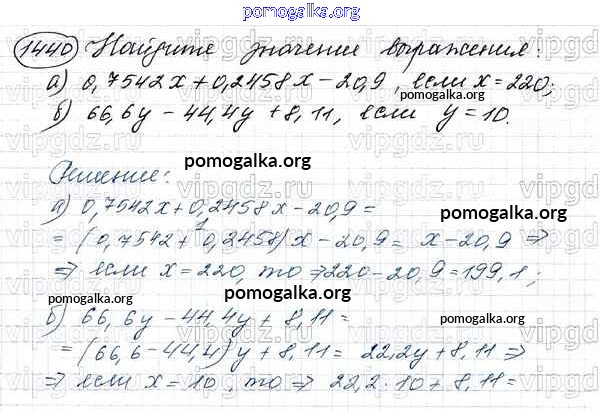 pomogalka.org
1440 Найдите значение выражения:
а) 0,7542x + 0,2458x - 20,9, если x = 220;
pomogalka.org
б) 66,6y - 44,4y + 8,11, если y = 10.
Решение: pomogalka.org
а) 0,7542x + 0,2458x - 20,9 =
pomogalka.org
= (0,7542 + 0,2458)x - 20,9 = x - 20,9 ⇒
⇒ если x = 220, то ⇒ 220 - 20,9 = 199,1;
pomogalka.org pomogalka.org
б) 66,6y - 44,4y + 8,11 = pomogalka.org
= (66,6 - 44,4)y + 8,11 = 22,2y + 8,11 ⇒
⇒ если x = 10, то ⇒ 22,2 · 10 + 8,11 =